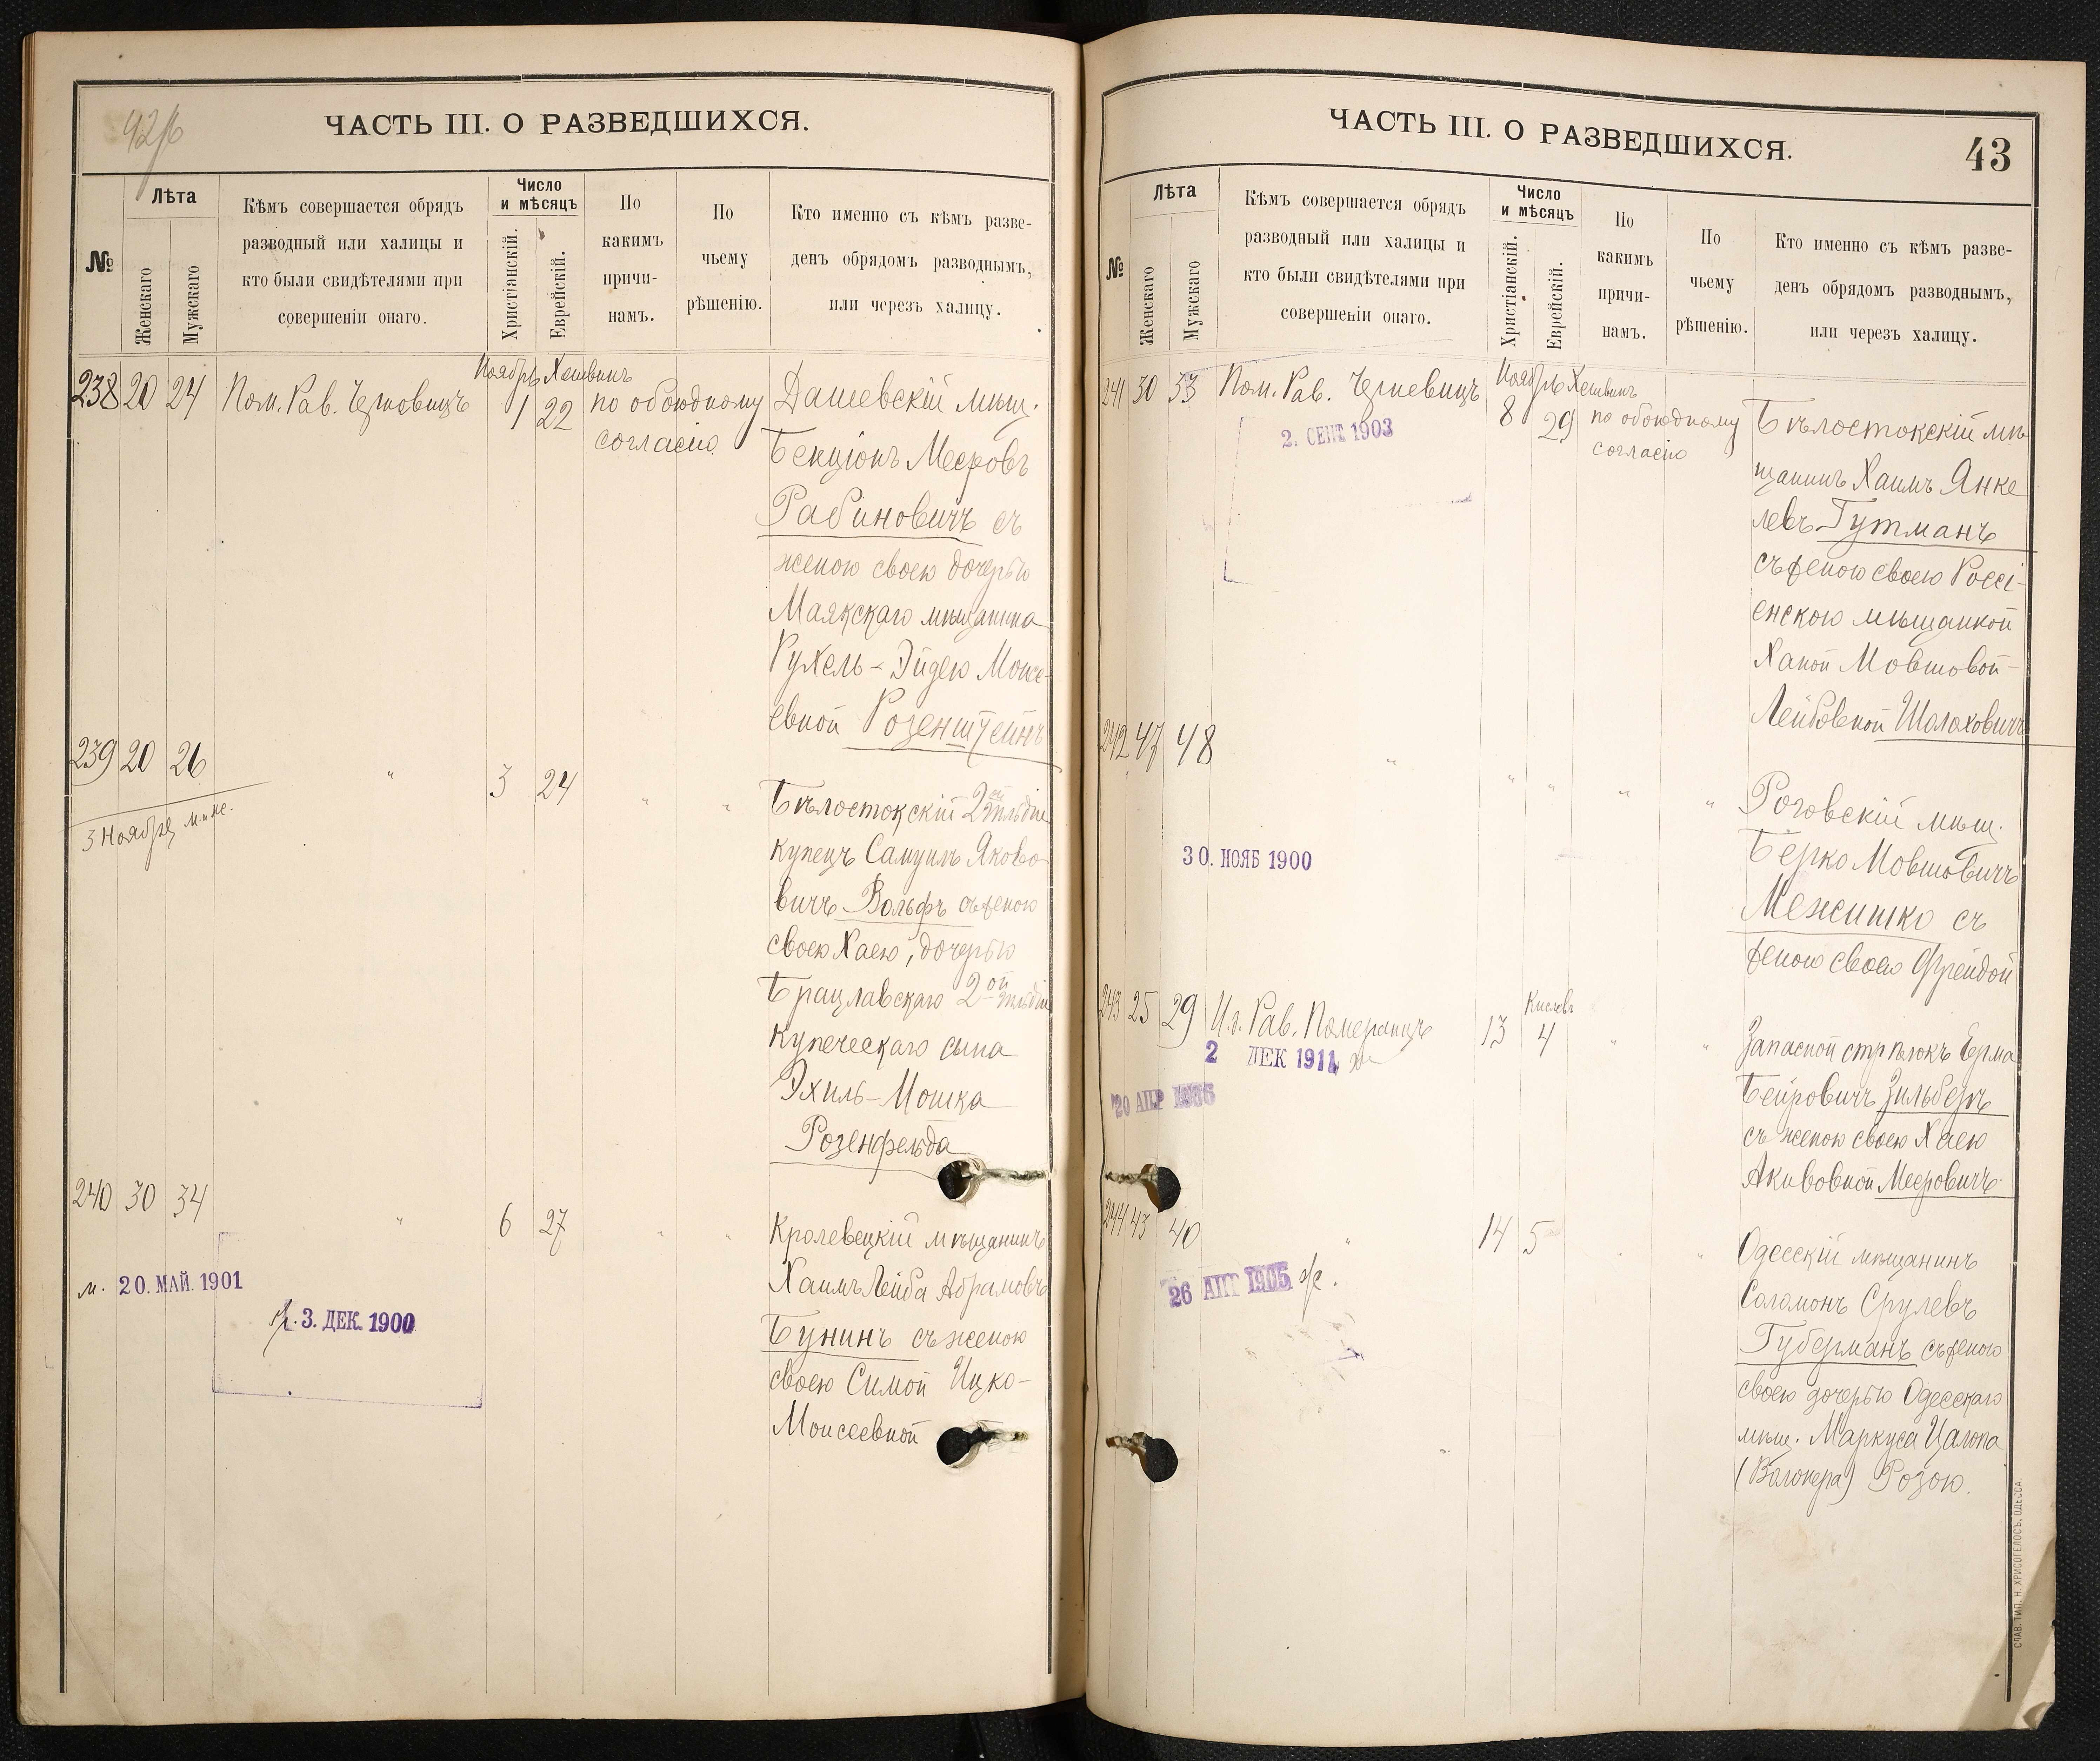 42/б
ЧАСТЬ III. О РАЗВЕДШИХСЯ.
№
Лѣта
Женскаго
Мужскаго
Кѣмъ совершается обрядъ
разводный или халицы и
кто были свидѣтелями при
совершеніи онаго.
Число
и мѣсяцъ
Христіанскій.
Еврейскій.
По
какимъ
причи-
намъ.
По
чьему
рѣшенію.
Кто именно съ кѣмъ разве-
денъ обрядомъ разводнымъ,
или черезъ халицу.
Ноябрь Хешвинъ
238 20 24 Пом. Рав. 1 22 по обоюдному
согласію
Дашевскій мѣщ.
Бенціонъ Мееровъ
Рабиновичъ съ
женою своею дочерью
Маякскаго мѣщанина
Рухель-Эйдею Моисе-
евной Розенштейнъ
239 20 26 " 3 24 " "
3 Ноября м. и ж.
Бѣлостокскій 2ой гильдіи
купецъ Самуилъ Яково-
вичъ Вольфъ съ женою
своею Хаею, дочерью
Брацлавскаго 2ой гильдіи
купеческаго сына
Эхиль-Мошка
Розенфельда
240 30 34 " 6 27 " "
м. 20. МАЙ. 1901
ж. 3. ДЕК. 1900
Кролевецкій мѣщанинъ
Хаимъ Лейба Абрамовъ
Бунинъ съ женою
своею Симой Ицко-
Моисеевной
ЧАСТЬ III. О РАЗВЕДШИХСЯ.
43
№
Лѣта
Женскаго
Мужскаго
Кѣмъ совершается обрядъ
разводный или халицы и
кто были свидѣтелями при
совершеніи онаго.
Число
и мѣсяцъ
Христіанскій.
Еврейскій.
По
какимъ
причи-
намъ.
По
чьему
рѣшенію.
Кто именно съ кѣмъ разве-
денъ обрядомъ разводнымъ,
или черезъ халицу.
Ноябрь Хешвинъ
241 30 33 Пом. Рав. 8 29 по обоюдному
согласію
2. СЕНТ 1903
Бѣлостокскій мѣ-
щанинъ Хаимъ Янке
левъ Гутманъ
съ женою своею Россі-
енскою мѣщанкой
Ханой Мовшовой-
Лейбовной Шолаховичъ
242 47 48 " " " " "
30. НОЯБ 1900
Роговскій мѣщ.
Берко Мовшовичъ
Межишко съ
женою своею Фрейдой
Кислевъ
243 25 29 И.о. Рав. Померанцъ 13 4 " "
2 ДЕК 1911 ж
20 АПР
Запасной стрѣлокъ Ерма
Бейровичъ Зильберъ
съ женою своею Хаею
Акивовной Мееровичъ
244 43 40 " 14 5 " "
26 АПР 1905 ж.
Одесскій мѣщанинъ
Соломонъ Срулевъ
Губерманъ съ женою
своею дочерью Одесскаго
мѣщ. Маркуса
Розою.
СЛАВ. ТИП. Н. ХРИСОГЕЛОСЪ, ОДЕССА.